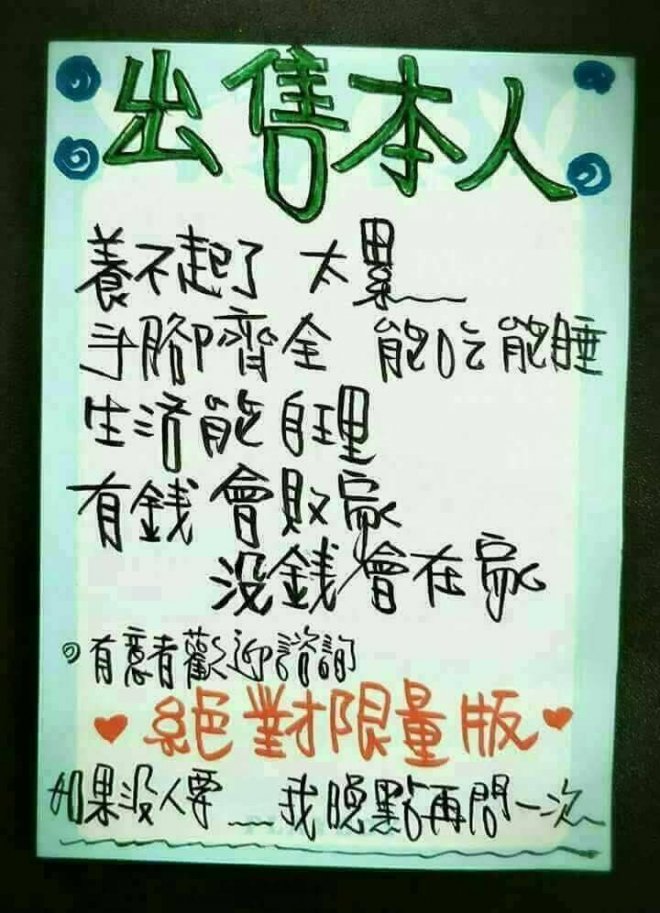 出售本人
養不起了 太累
手腳齊全 能吃能睡
生活能自理
有錢會敗家
沒錢會在家
有意者歡迎諮詢
絕對限量版
如果沒人要__我晚點再問一次